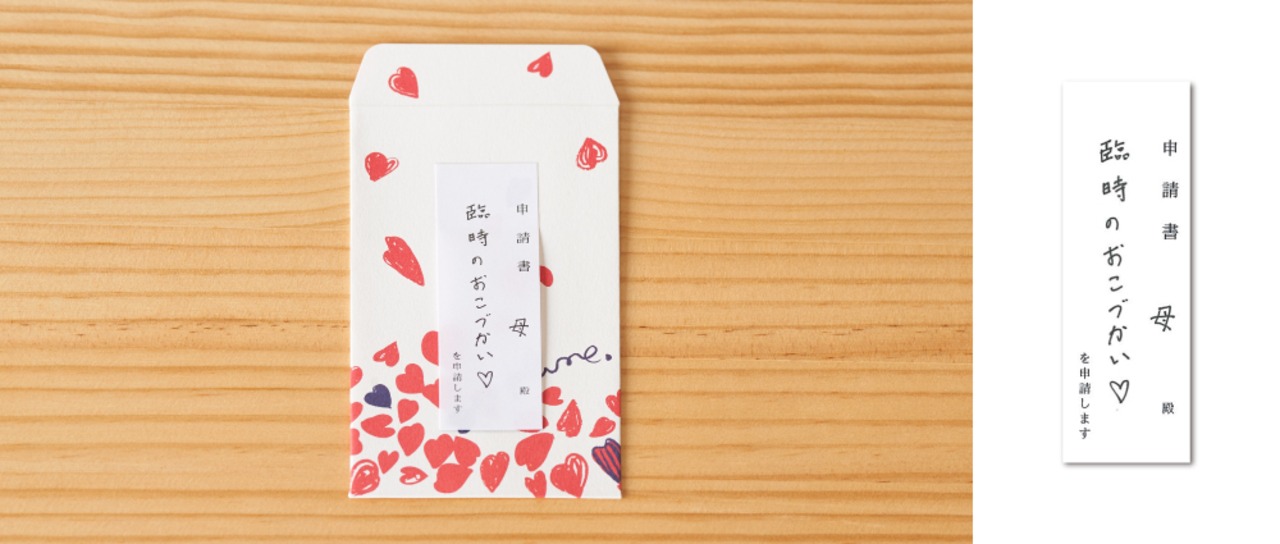 申請書 母 殿
臨時のおこづかい♡
を申請します
une.
申請書 母 殿
臨時のおこづかい♡
を申請します